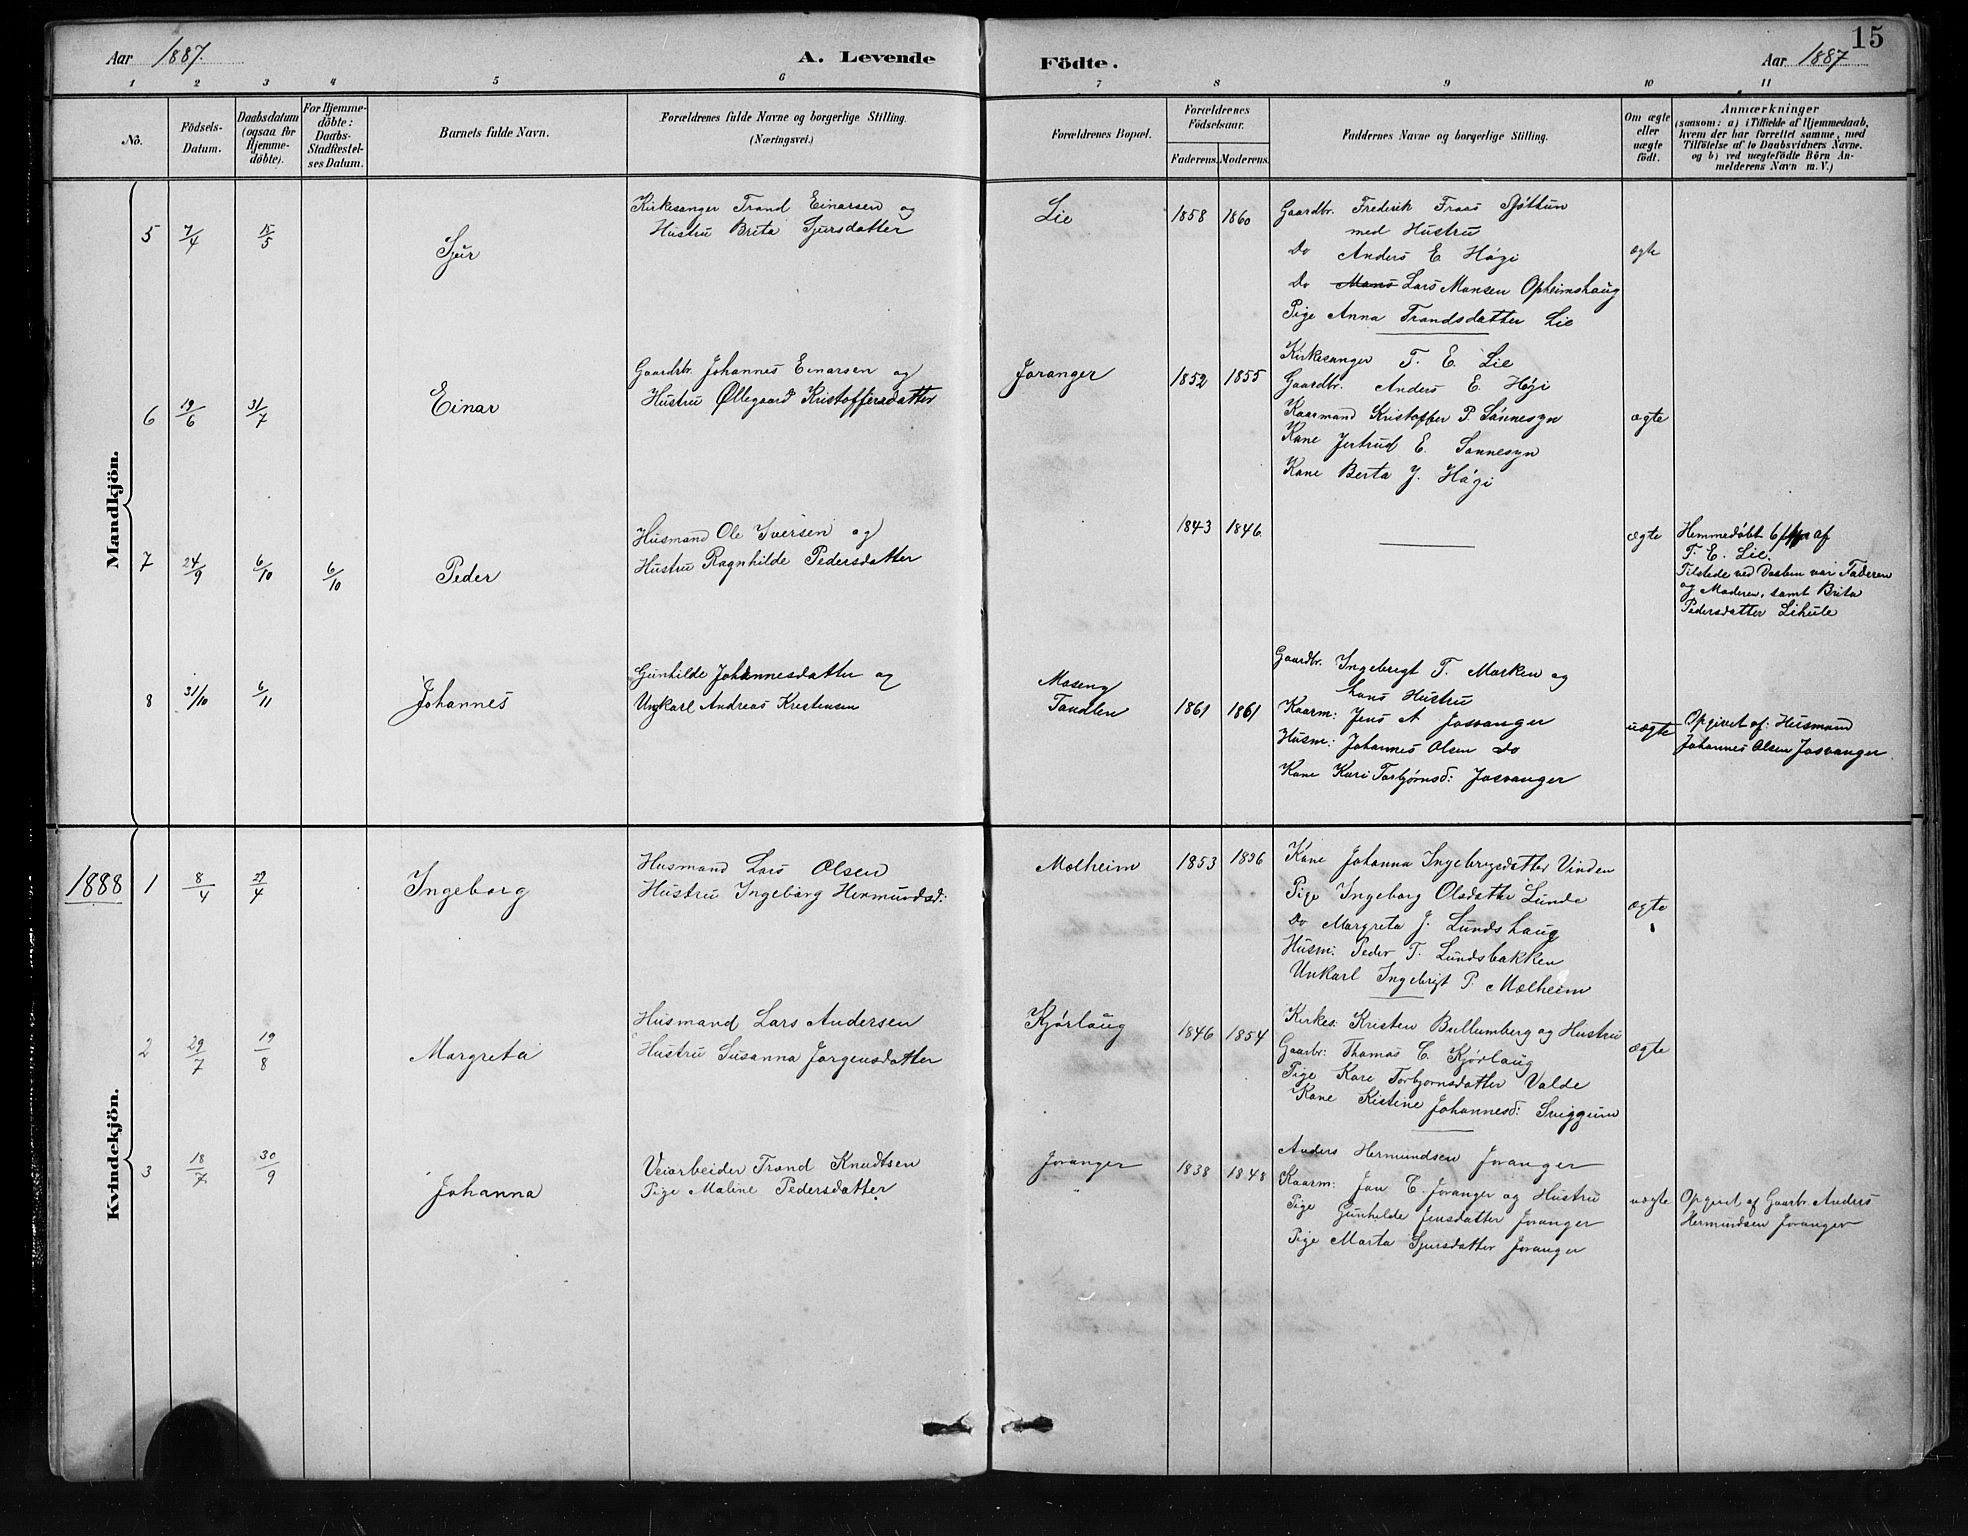 15
Aar 1887.
A. Levende
Födte.
Aar 1887
1 2 3 4 5 6 7 8 9 10 11
No.
Födsels-
Datum.
Daabsdatum
(ogsaa for
Hjemme-
döbte).
For Hjemme-
döbte:
Daabs-
Stadfæstel-
ses Datum.
Barnets fulde Navn.
Forældrenes fulde Navne og borgerlige Stilling.
(Næringsvei.)
Forældrenes Bopæl.
Forældrenes
Födselsaar.
Faderens. Moderens.
Faddernes Navne og borgerlige Stilling.
Om ægte
eller
uægte
født.
Anmærkninger
(saasom: a) i Tilfælde af Hjemmedaab,
hvem der har forrettet samme, med
Tilföielse af to Daabsvidners Navne.
og b) ved uægtefödte Börn An-
melderens Navn m. V.)
Mandkjön.
5 7/4 15/5
Sjur
Kirkesanger Trand Einarsen og
Hustru Brita Sjursdatter
Lie
1858 1860
Gaardbr. Frederik Fraas Sjøttun
med Hustru
Do Anders E. Høgi
Do Mons Lars Monsen Opheimshaug
Pige Anna Trandsdatter Lie
ægte
6 19/6 31/7
Einar
Gaardbr. Johannes Einarsen og
Hustru Øllegaard Kristoffersdatter
Joranger
1852 1855
Kirkesanger T. E. Lie
Gaardbr. Anders E. Høgi
Kaarmand Kristoffer P. Sønnesyn
Kone Jertrud E. Sønnesyn
Kone Berta J. Høgi
ægte
7 24/9 6/10 6/10
Peder
Husmand Ole Iversen og
Hustru Ragnhilde Pedersdatter
1843 1846
ægte
Hemmedøbt 6/10 af
T. E. Lie.
Tilstede ved Daaben var Faderen
og Moderen, samt Brita
Pedersdatter Lihule
8 31/10 6/11
Johannes
Gunhilde Johannesdatter og
Ungkarl Andreas Kristensen
Moseng
Tandlen
1861 1861
Gaardbr. Ingebrigt T. Marken og
hans Hustru
Kaarm: Jens A Josvanger
Husm: Johannes Olsen Do
Kone Kari Torbjørnsd: Josvanger
uægte
Opgivet af: Husmand
Johannes Olsen Josvanger
Kvindekjön.
1888
1 8/4 29/4
Ingeborg
Husmand Lars Olsen
Hustru Ingeborg Hermundsd:
Molheim
1853 1856
Kone Johanna Ingebrigsdatter Vinden
Pige Ingeborg Olsdatter Lunde
Do Margreta J. Lundshaug
Husm: Peder T. Lundsbakken
Unkarl Ingebrigt P. Molheim
ægte
2 29/7 19/8
Margreta
Husmand Lars Andersen
Hustru Susanna Jørgensdatter
Kjørlaug
1846 1854
Kirkes: Kristen Bullumberg og Hustru
Gaarbr: Thomas C. Kjørlaug
Pige Kari Torbjornsdatter Valde
Kone Kistine Johannesd: Sviggum
ægte
3 18/7 30/9
Johanna
Veiarbeider Trand Knudtsen
Pige Maline Pedersdatter
Joranger
"
1838 1848
Anders Hermundsen Joranger
Kaarm: Jan C. Joranger og Hustru
Pige Gunhilde Jensdatter Joranger
Pige Marta Sjursdatter Joranger
uægte
Opgivet af Gaarbr. Anders
Hermundsen Joranger